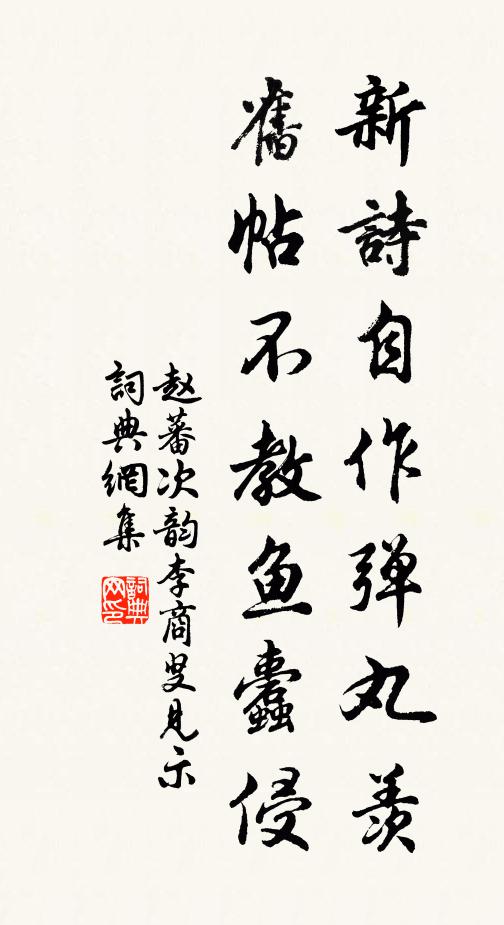 新詩自作弹丸羨
舊帖不教鱼蠹侵
赵蕃次韵李商叟見示
詞典網集
詞典
网印